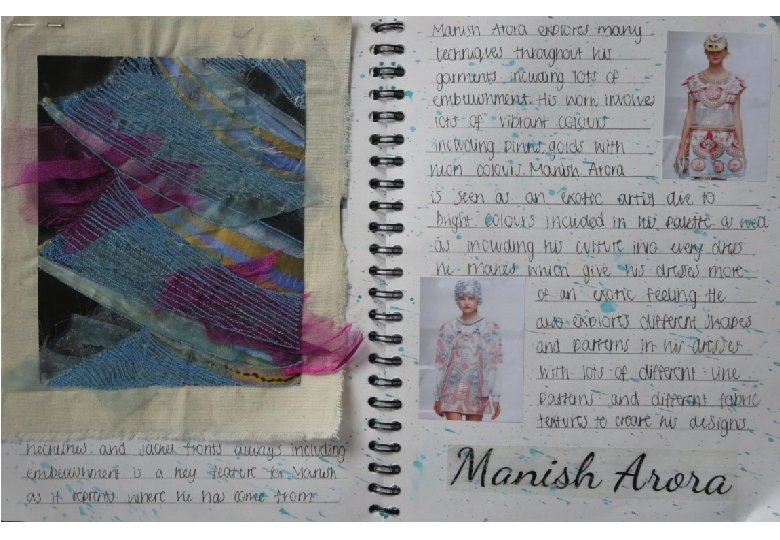 necklines and jacket fronts always including
embellishment is a key feature for Manish
as it reprents where he has come from
Manish Arora explores many
techniques throughout his
garments including lots of
embellishment. His work involves
lots of vibrant colours
including pinns, golds with
neon colours. Manish Arora
is seen as an exotic artist due to
bright colours included in his palette as well
as including his culture into every dress
he makes which give his dresses more
of an exotic feeling. He
also explores different shapes
and patterns in his dresses
with lots of different line
patterns and different fabric
textures to create his designs
Manish Arora